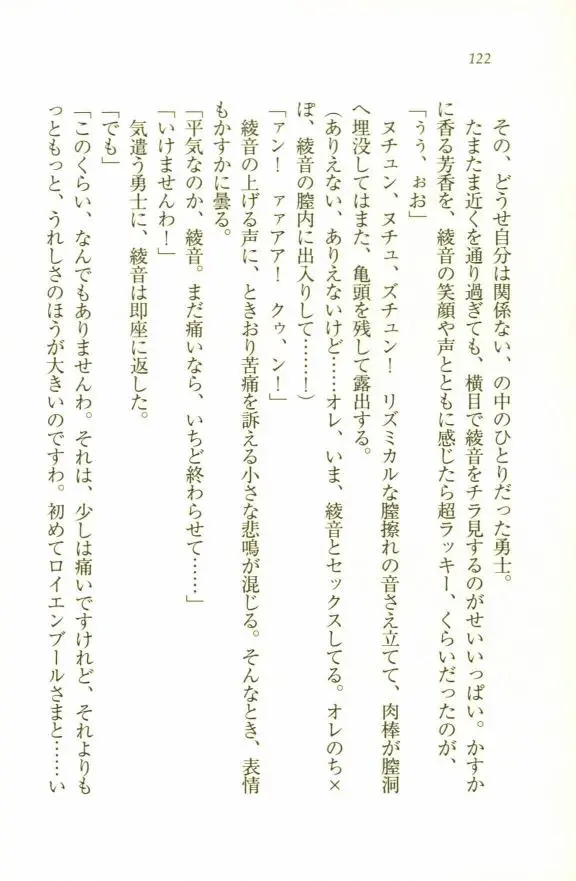 122
その、どうせ自分は関係ない、の中のひとりだった勇士。
たまたま近くを通り過ぎても、横目で綾音をチラ見するのがせいいっぱい。かすか
に香る芳香を、綾音の笑顔や声とともに感じたら超ラッキー、くらいだったのが、
「うぅ、ぉお」
ヌチュン、ヌチュ、ズチュン！　リズミカルな膣擦れの音さえ立てて、肉棒が膣洞
へ埋没してはまた、亀頭を残して露出する。
(ありえない、ありえないけど……オレ、いま、綾音とセックスしてる。オレのち×
ぽ、綾音の膣内に出入りして……！)
「ァン！　ァァアア！　クゥ、ン！」
綾音の上げる声に、ときおり苦痛を訴える小さな悲鳴が混じる。そんなとき、表情
もかすかに曇る。
「平気なのか、綾音。まだ痛いなら、いちど終わらせて……」
「いけませんわ！」
気遣う勇士に、綾音は即座に返した。
「でも」
「このくらい、なんでもありませんわ。それは、少しは痛いですけれど、それよりも
っともっと、うれしさのほうが大きいのですわ。初めてロイエンブールさまと……い